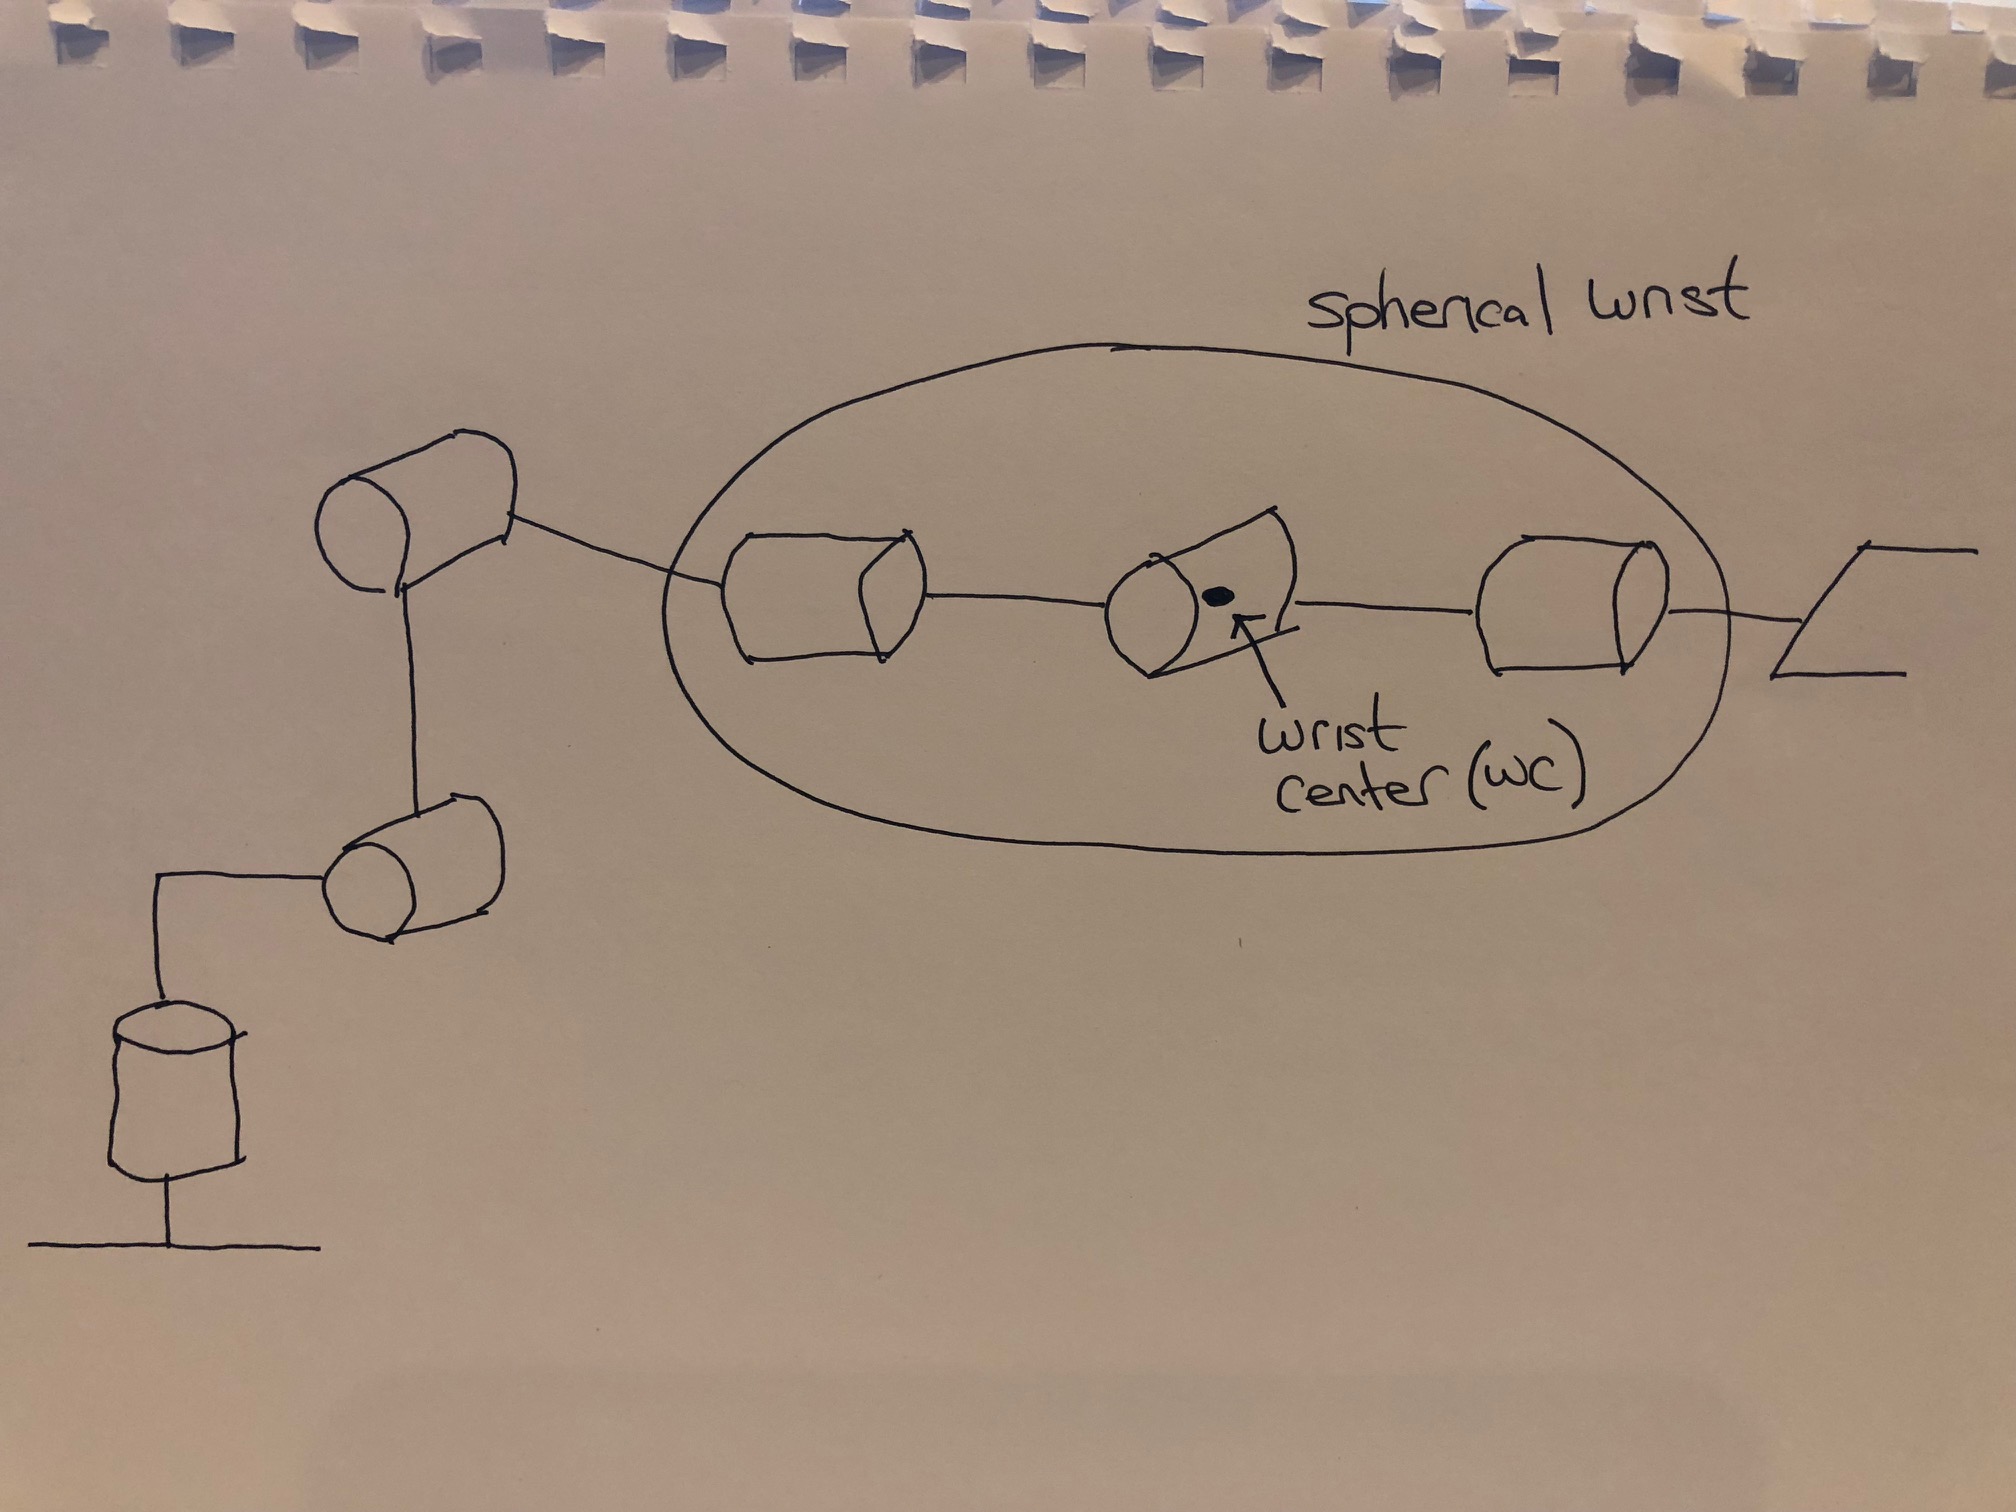 spherical wrist
wrist
center (wc)